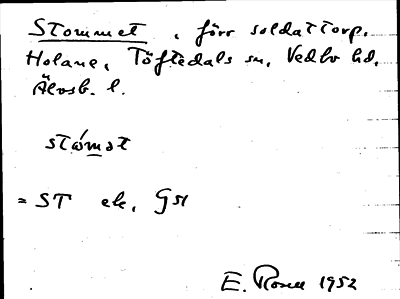 Stommet, förr soldattorp.
Holane, Töftedals sn, Vedbo hd,
Älvsb. l.
stómət
= ST ek, Gst
E. Rosell 1952